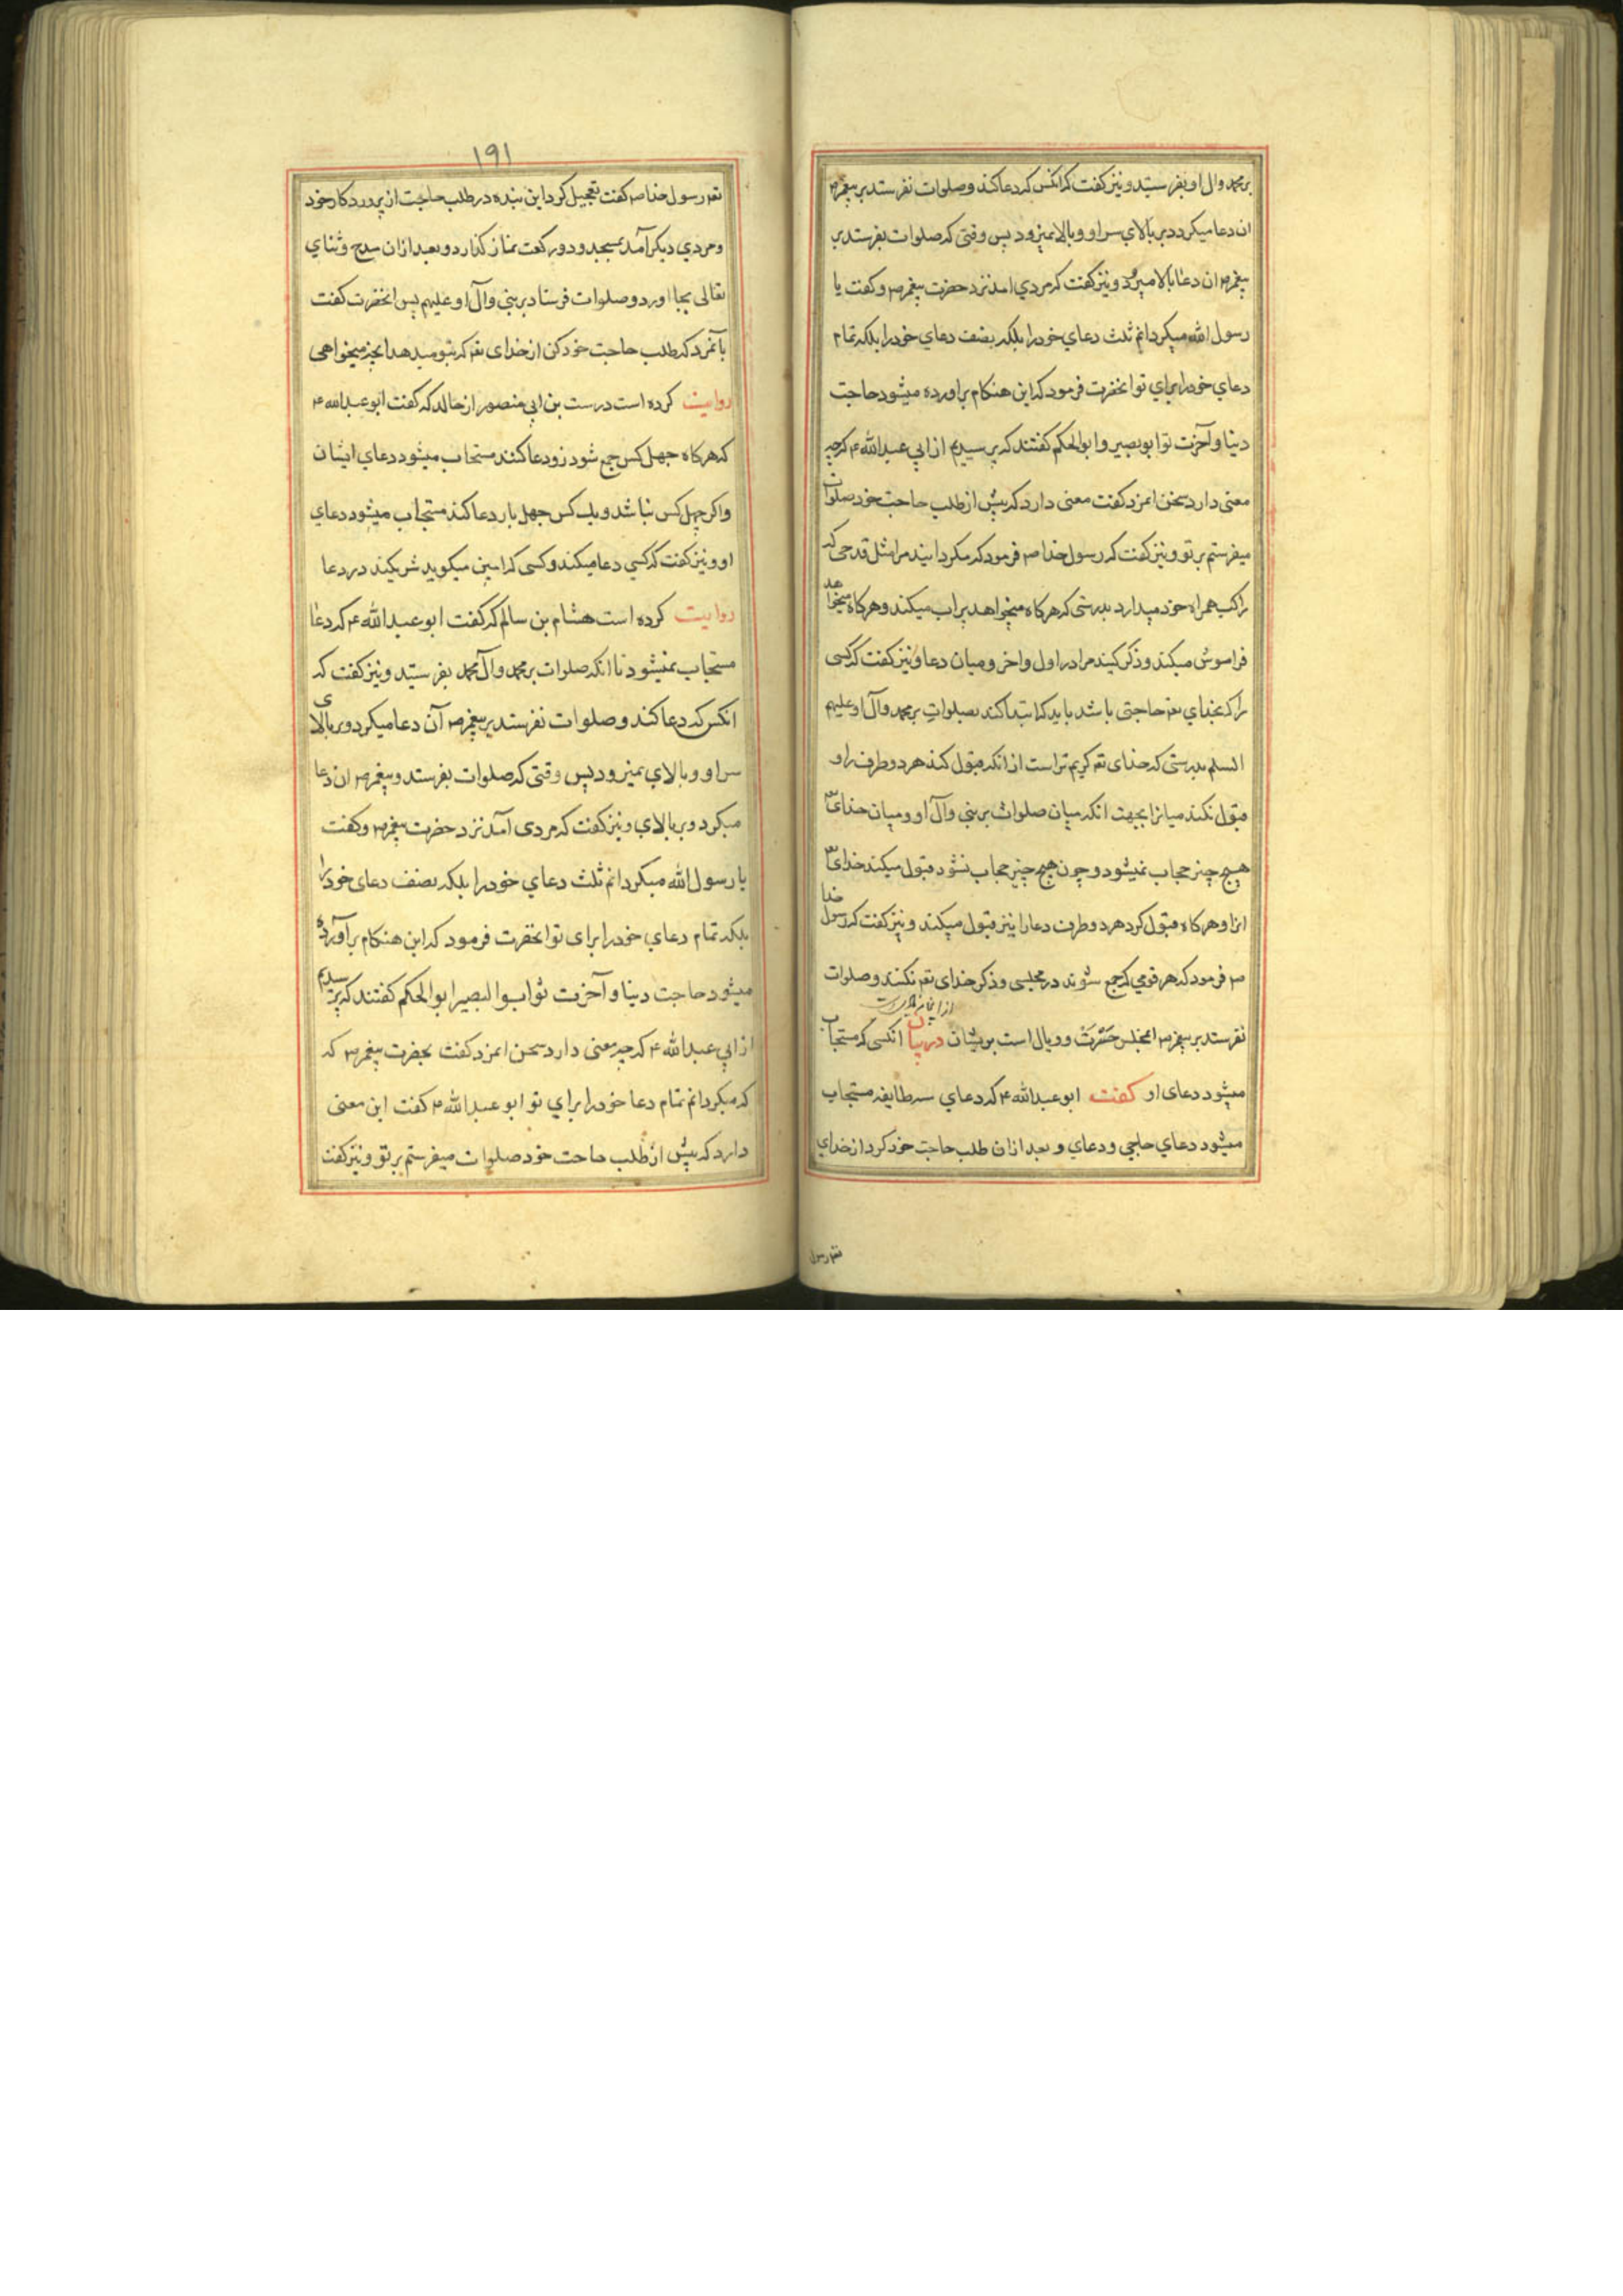 بر محمد وال او بفرستید و نیز کفت که انکس که دعا کند و صلوات نفرستد بر پیغمبر ص
ان دعا میکردد بر بالای سر او و بالا نمیرود پس وقتی که صلوات بفرستد بر
پیغمبر ص ان دعا بالا میرود و نیز کفت که مردی امد نزد حضرت پیغمبر ص و کفت یا
رسول الله میکردانم ثلث دعای خود را بلکه نصف دعای خود را بلکه تمام
دعای خود را برای تو انحضرت فرمود که این هنکام براورده میشود حاجت
دنیا و آخرت تو ابو بصیر و ابو الحکم کفتند که پرسیدیم از ابی عبد الله ع که چه
معنی دارد سخن انمرد کفت معنی دارد که پیش از طلب حاجت خود صلوات
میفرستم بر تو و نیز کفت که رسول خدا ص فرمود که مکردانید مرا مثل قدحی که
راکب همراه خود میدارد بدرستی که هرکاه میخواهد پر اب میکند و هرکاه میخواهد
فراموش میکند و ذکر کنید مرا در اول و اخر و میان دعا و نیز کفت که کسی
را که بخدای تعم حاجتی باشد باید که ابتدا کند بصلوات بر محمد و آل او علیهم
السلم بدرستی که خدای تعم کریم تر است از انکه قبول کند هر دو طرف را و
قبول نکند میانرا بجهت انکه میان صلوات بر نبی و آل او و میان خدای تع
هیچ چیز حجاب نمیشود و چون هیچ چیز حجاب نشود قبول میکند خدای تع
انرا و هرکاه قبول کرد هر دو طرف دعا را نیز قبول میکند و نیز کفت که رسول خدا
ص فرمود که هر قومی که جمع شوند در مجلسی و ذکر خدای تعم نکنند و صلوات
نفرستد بر پیغمبر ص انمجلس حسرت و وبال است بر یشان در بیان انکسی که مستجاب
میشود دعای او کفت ابو عبد الله ع که دعای سه طایفه مستجاب
میشود دعای حاجی و دعای و بعد ازان طلب حاجت خود کرد از خدای
تعم رسول
۱۹۱
تعم رسول خدا ص کفت تعجیل کرد این بنده در طلب حاجت از پروردکار خود
و مردی دیکر آمد بمسجد و دو رکعت نماز کذارد و بعد ازان مدح و ثنای
تعالی بجا اورد و صلوات فرستاد بر نبی و آل او علیهم پس انحضرت کفت
بآنمرد که طلب حاجت خود کن از خدای تعم که بتو میدهد انچه میخواهی
روایت کرده است درست بن ابی منصور از خالد که کفت ابو عبد الله ع
که هرکاه چهل کس جمع شود زود دعا کنند مستجاب میشود دعای ایشان
و اکر چهل کس نباشد و یک کس چهل بار دعا کند مستجاب میشود دعای
او و نیز کفت که کسی دعا میکند و کسی که امین میکوید شریکند در دعا
روایت کرده است هشام بن سالم که کفت ابو عبد الله ع که دعا
مستجاب نمیشود تا انکه صلوات بر محمد و آل محمد بفرستید و نیز کفت که
انکس که دعا کند و صلوات نفرستد بر پیغمبر ص آن دعا میکردد بر بالای
سر او و ببالای نمیرود پس وقتی که صلوات بفرستد و پیغمبر ص ان دعا
میکردد بر بالای و نیز کفت که مردی آمد نزد حضرت پیغمبر ص و کفت
یا رسول الله میکردانم ثلث دعای خود را بلکه نصف دعای خود را
بلکه تمام دعای خود را برای تو انحضرت فرمود که این هنکام برآورده
میشود حاجت دنیا و آخرت تو ابو البصیر ابو الحکم کفتند که پرسیدیم
از ابی عبد الله ع که چه معنی دارد سخن انمرد کفت بحضرت پیغمبر ص که
که میکردانم تمام دعا خود را برای تو ابو عبد الله ع کفت این معنی
دارد که پیش از طلب حاجت خود صلوات میفرستم بر تو و نیز کفت